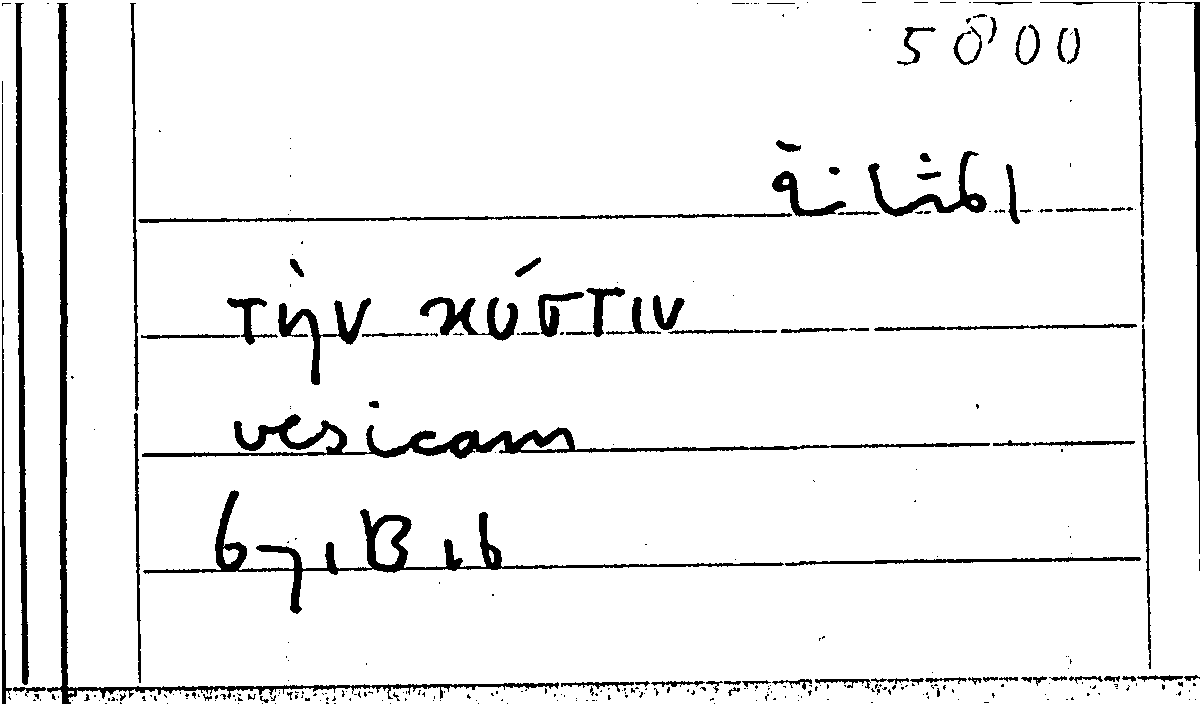 5800
المثانة
τὴν κύστιν
vesicam